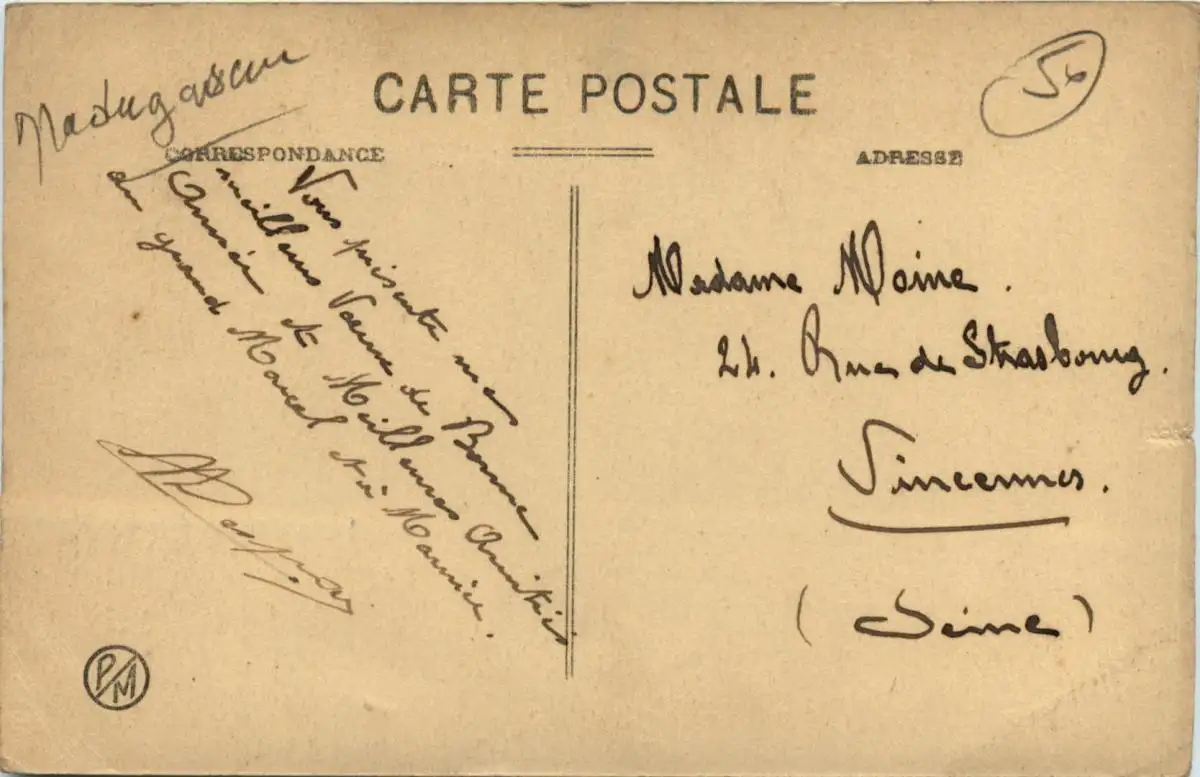 Madagascar
50
CARTE POSTALE
CORRESPONDANCE
ADRESSE
Vous présente mes
meilleurs Vœux de Bonne
Année et Meilleures Amitiés
du grand Marcel et à Maurice.
Madame Moine.
24. Rue de Strasbourg.
Vincennes.
(Seine)
PM